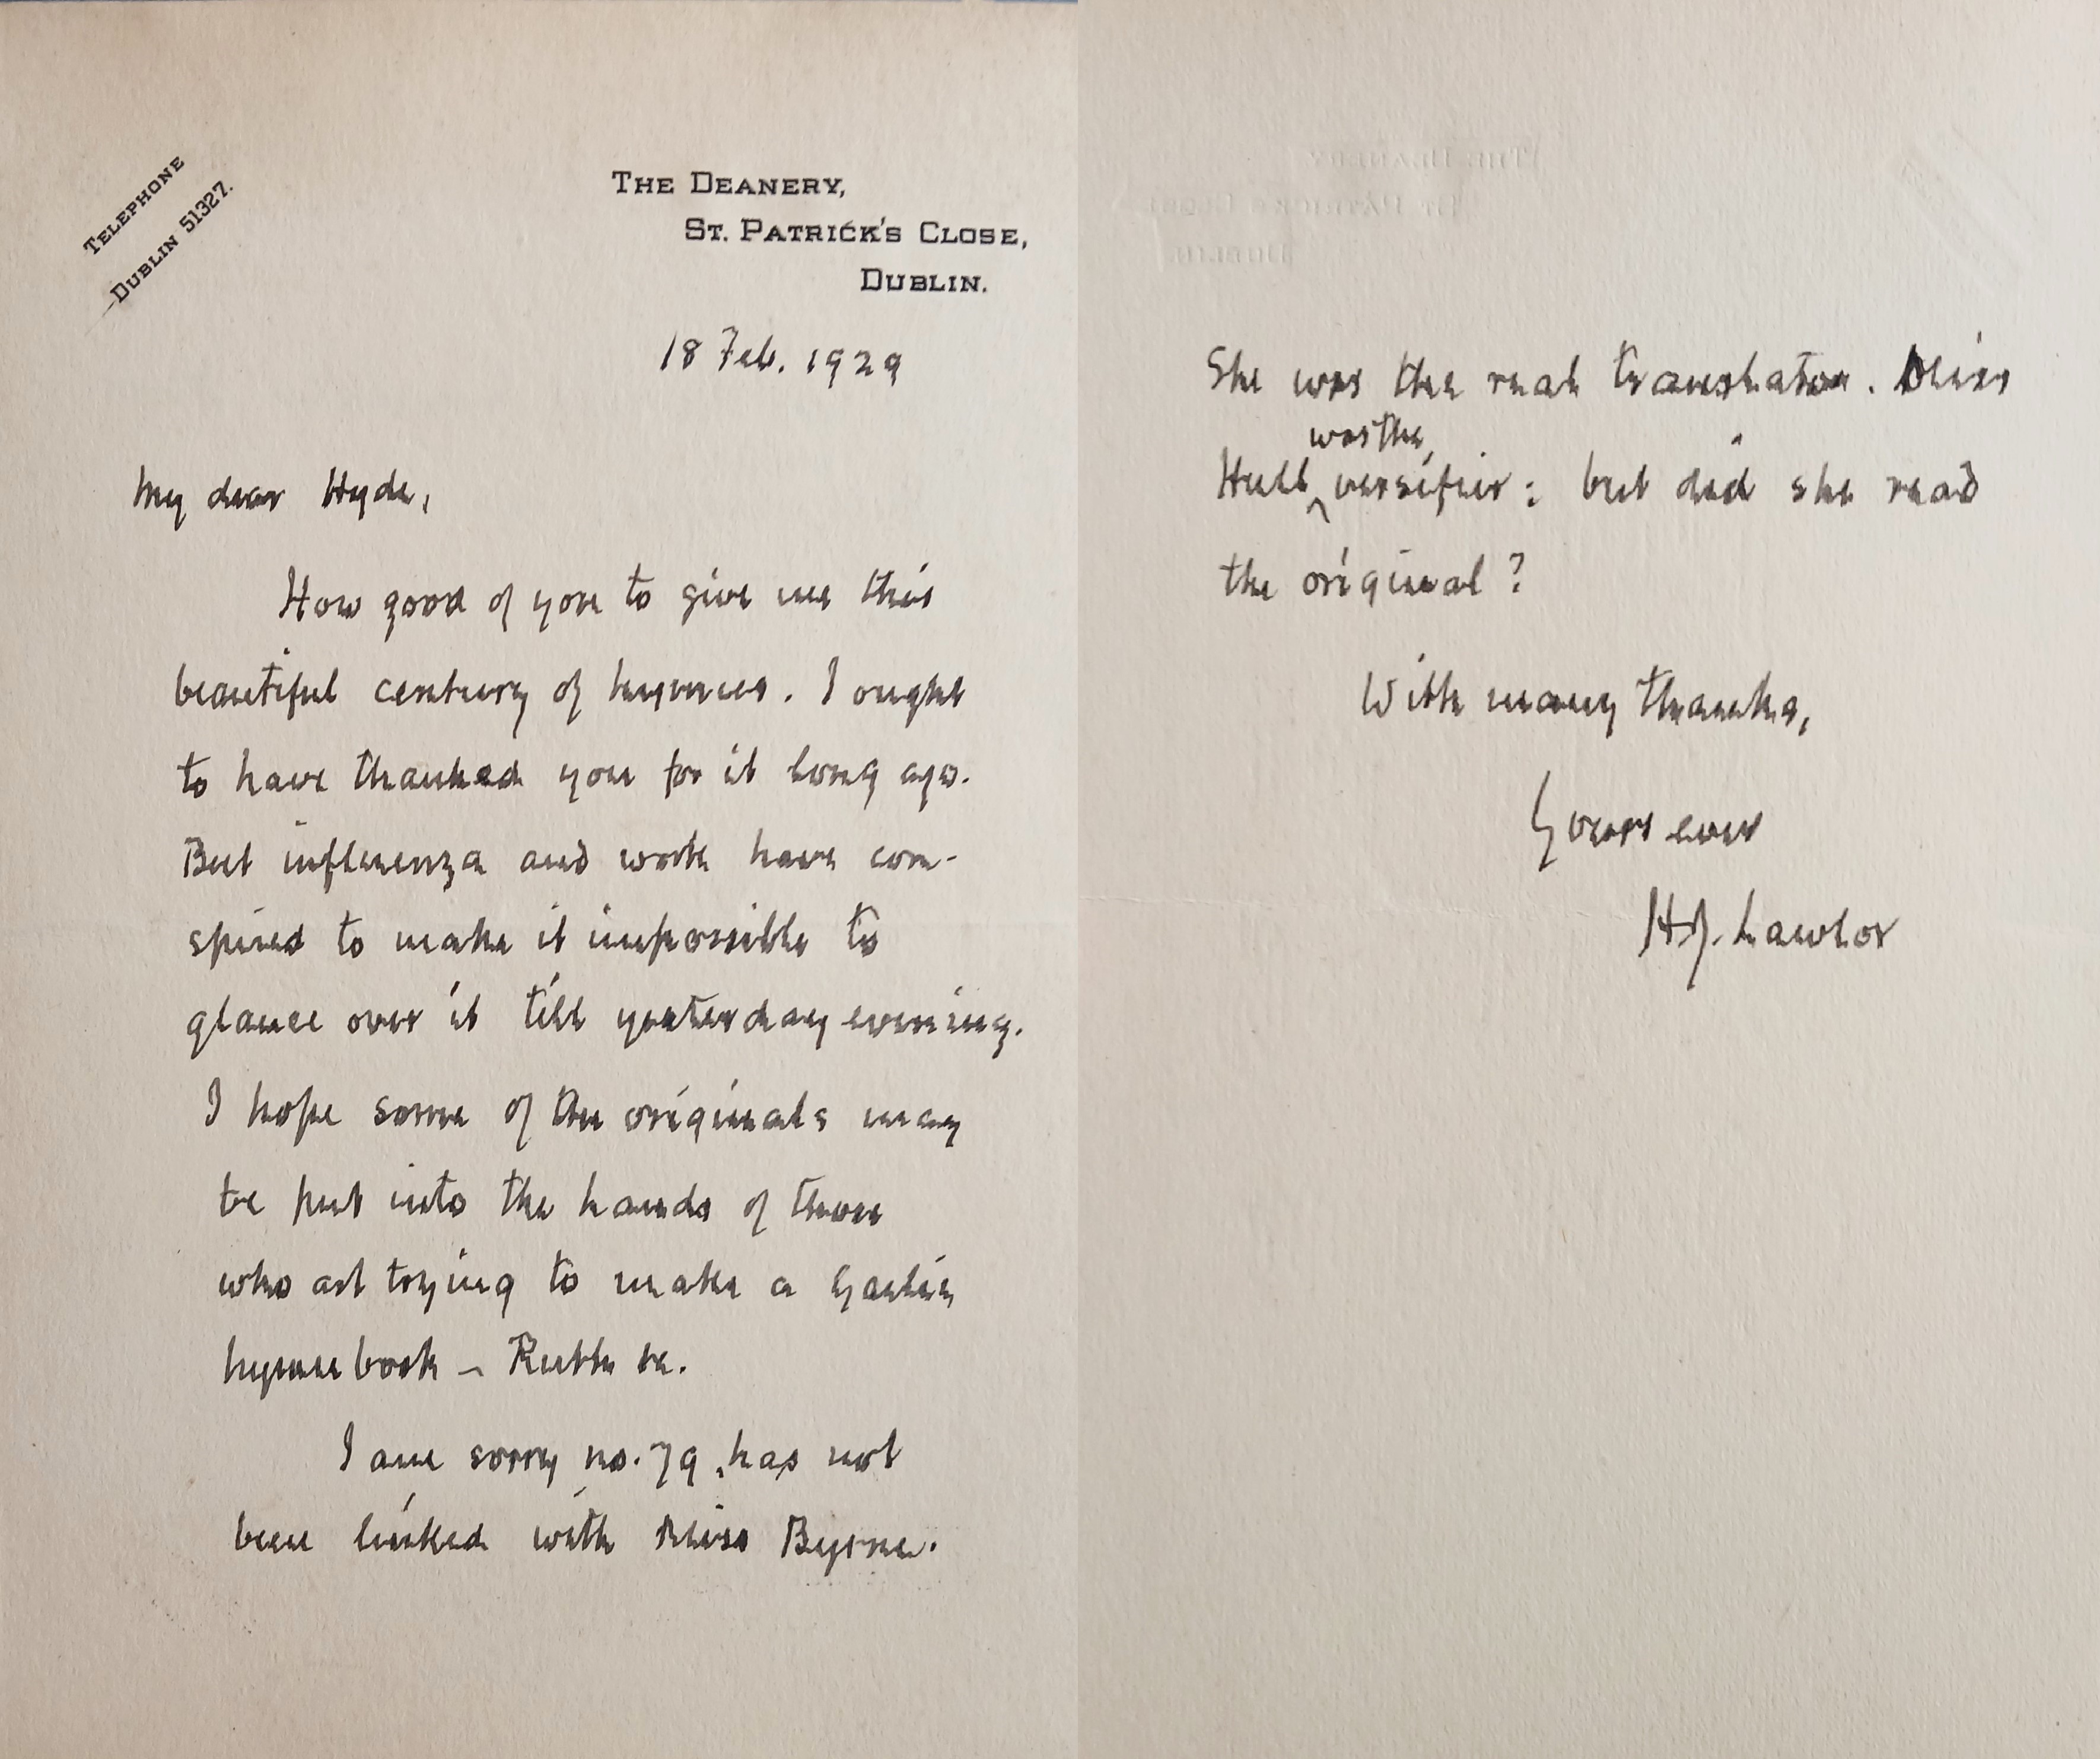 TELEPHONE
DUBLIN 51327.
THE DEANERY,
ST. PATRICK'S CLOSE,
DUBLIN.
18 Feb. 1929
My dear Hyde,
How good of you to give me this
beautiful century of hymns. I ought
to have thanked you for it long ago.
But influenza and work have con-
spired to make it impossible to
glance over it till yesterday evening.
I hope some of the originals may
be put into the hands of those
who are trying to make a Gaelic
hymn book – Ruth &c.
I am sorry no. 79 has not
been linked with Miss Byrne.
She was the real translator. Miss
was the
Hull ^ versifier: but did she read
the original?
With many thanks,
Yours ever
H.J. Lawlor